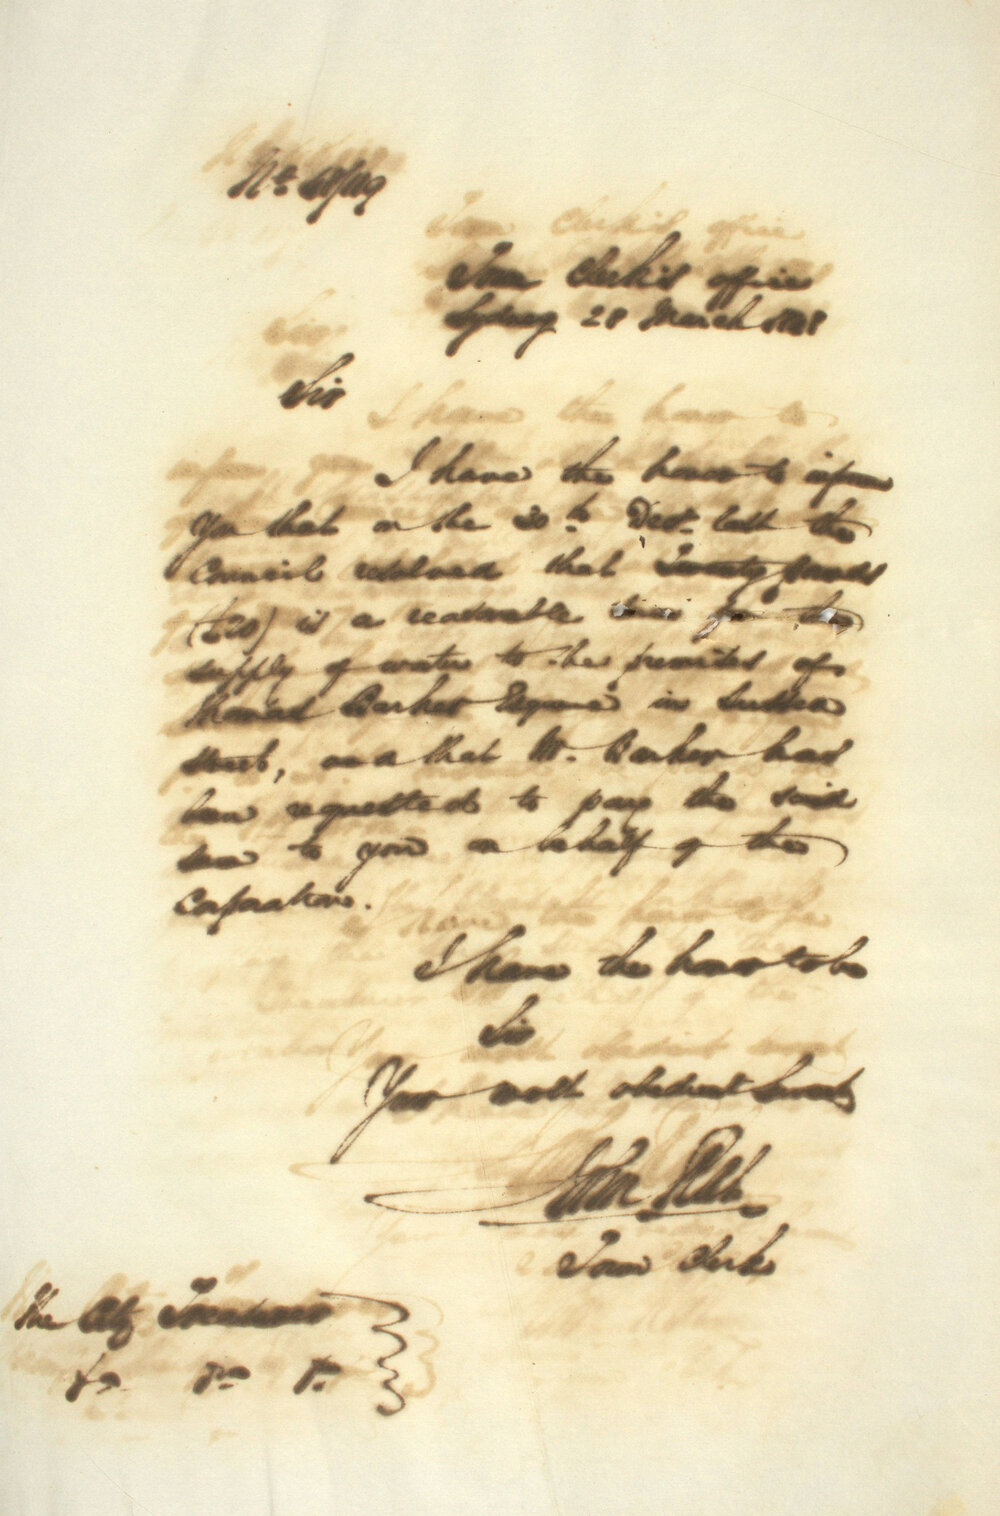 Town Clerk's office
Sydney 28 March 1848
Sir
I have the honor to inform
You that on the 30th Decr. last the
Council resolved that Twenty pounds
(£20) is a reasonable sum for the
supply of water to the premises of
Thomas Barker Esquire in Sussex
Street, and that Mr. Barker has
been requested to pay the said
sum to you on behalf of the
Corporation.
I have the honor to be
Sir
Your most obedient Servant
John Rush
Town Clerk
The City Treasurer